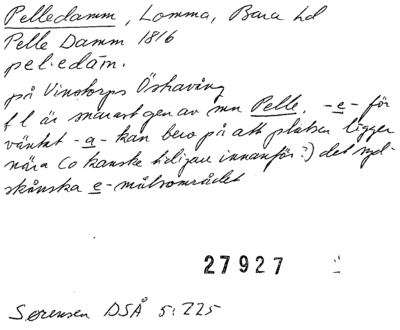 Pelledamm, Lomma, Bara hd
Pelle Damm 1816
pel·edam.
på Vinstorps Östraving
f l är snarast gen av mn Pelle. -e- för
väntat -a- kan bero på att platsen ligger
nära (o kanske tidigare innanför?) det syd-
skånska e-målsområdet
27927
Sørensen DSÅ 5:225